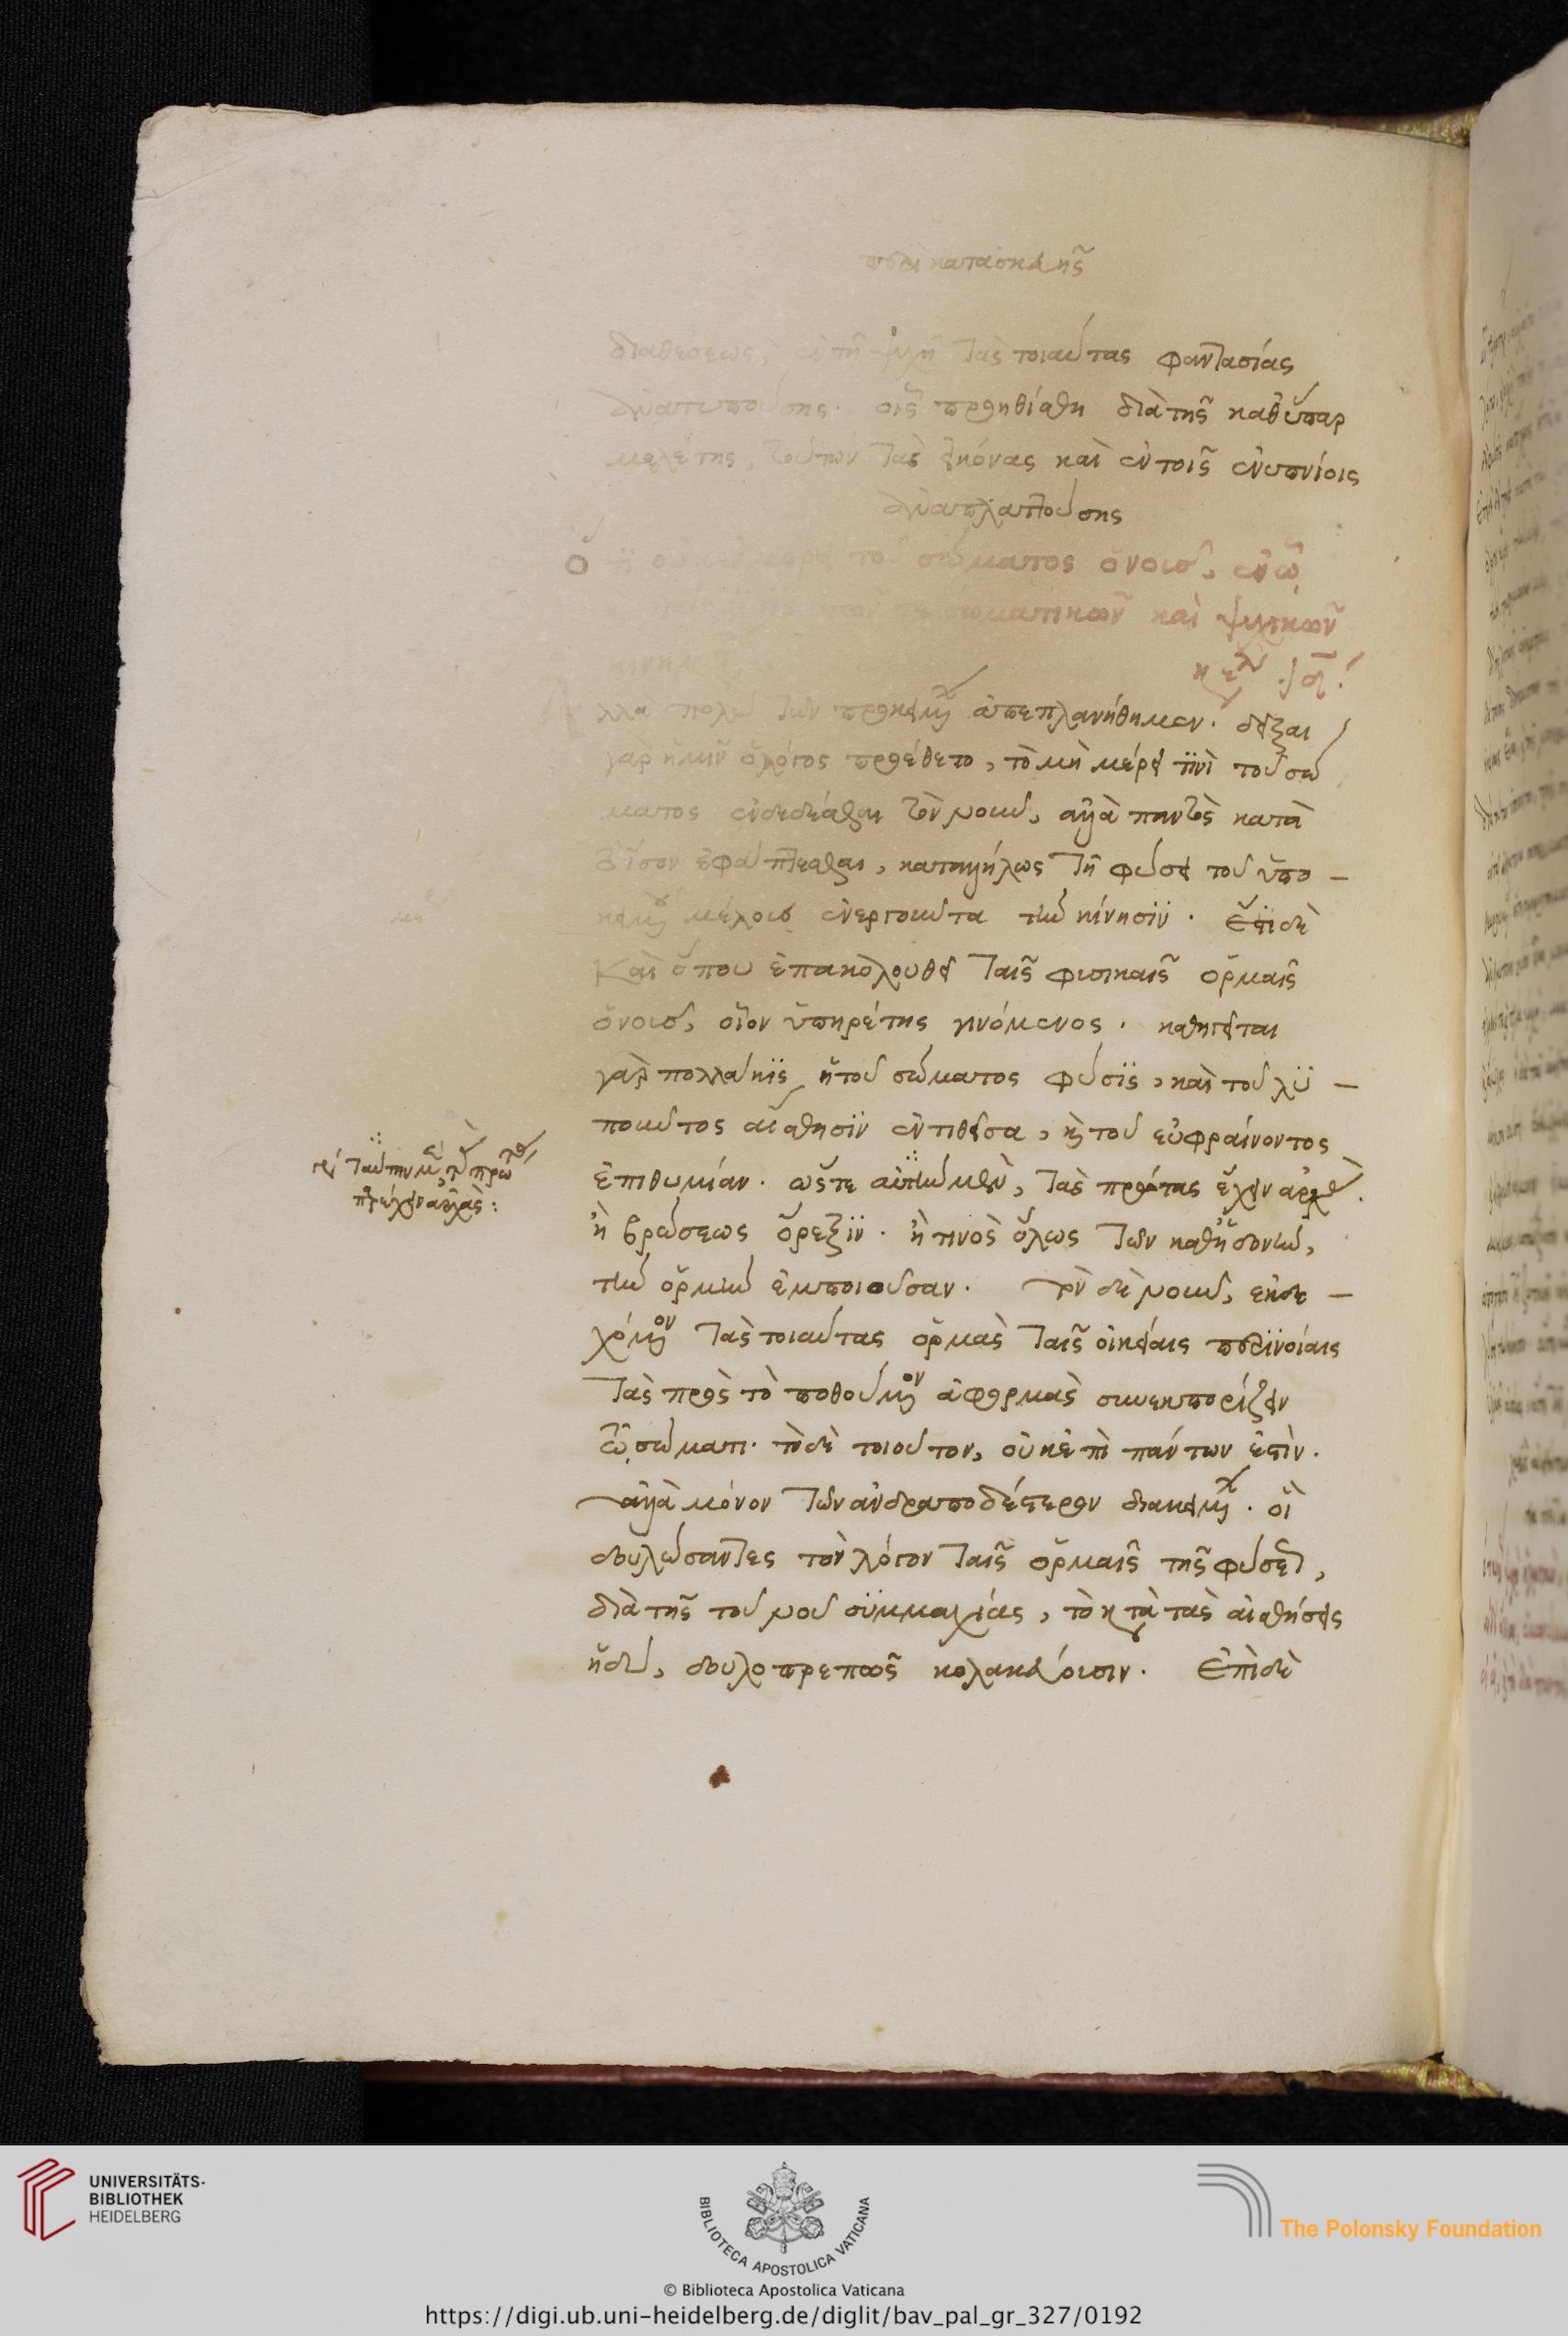 περὶ κατασκευῆς
διαθέσεως, ἐν τῆ ψυχῆ τὰς τοιαύτας φαντασίας
ἀνατυπούσης. οἷς προσηθίσθη διὰ τῆς καθ' ὕπαρ
μελέτης, τούτων τὰς εἰκόνας καὶ ἐν τοῖς ἐνυπνίοις
ἀναπλαττούσης
Ὅτι οὐκ ἐν μέρει τοῦ σώματος ὁ νοῦς,
τῶν τε σωματικῶν καὶ ψυχικῶν
κινημάτων
κεφ
Ἀλλὰ πολὺ τῶν προκειμένων ἀπεπλανήθημεν. δεῖξαι
γὰρ ἡμῖν ὁ λόγος προέθετο, τὸ μὴ μέρει τινὶ τοῦ σώ
ματος ἐνδεδέσθαι τὸν νοῦν, ἀλλὰ παντὸς κατὰ
τὸ ἴσον ἐφάπτεσθαι, καταλλήλως τῆ φύσει τοῦ ὑπο-
κειμένου μέρους ἐνεργοῦντα τὴν κίνησιν. Ἔστι δὲ
Καὶ ὅπου ἐπακολουθεῖ ταῖς φυσικαῖς ὁρμαῖς
ὁ νοῦς, οἷον ὑπηρέτης γινόμενος. καθηγεῖται
γὰρ πολλάκις ἡ τοῦ σώματος φύσις, καὶ τοῦ λυ-
ποῦντος αἴσθησιν ἐντιθεῖσα, καὶ τοῦ εὐφραίνοντος
ἐπιθυμίαν. ὥστε αὐτὴν μὲν, τὰς πρώτας ἔχειν ἀρχὰς.
ἢ βρώσεως ὄρεξιν. ἤ τινος ὅλως τῶν καθ' ἡδονὴν,
τὴν ὁρμὴν ἐμποιοῦσαν. τὸν δὲ νοῦν, ἐκδε-
χόμενον τὰς τοιαύτας ὁρμὰς ταῖς οἰκείαις περινοίαις
τὰς πρὸς τὸ ποθούμενον ἀφορμὰς συνεκπορίζειν
τῶ σώματι. τὸ δὲ τοιοῦτον, οὐκ ἐπὶ πάντων ἐστὶν.
ἀλλὰ μόνον τῶν ἀνδραποδέστερον διακειμένων. οἳ
δουλώσαντες τὸν λόγον ταῖς ὁρμαῖς τῆς φύσεως,
διὰ τῆς τοῦ νοῦ συμμαχίας, τὸ κατὰ τὰς αἰσθήσεις
ἡδὺ, δουλοπρεπῶς κολακεύουσιν. Ἐπὶ δὲ
UNIVERSITÄTS-
BIBLIOTHEK
HEIDELBERG
BIBLIOTECA APOSTOLICA VATICANA
The Polonsky Foundation
© Biblioteca Apostolica Vaticana
https://digi.ub.uni-heidelberg.de/diglit/bav_pal_gr_327/0192